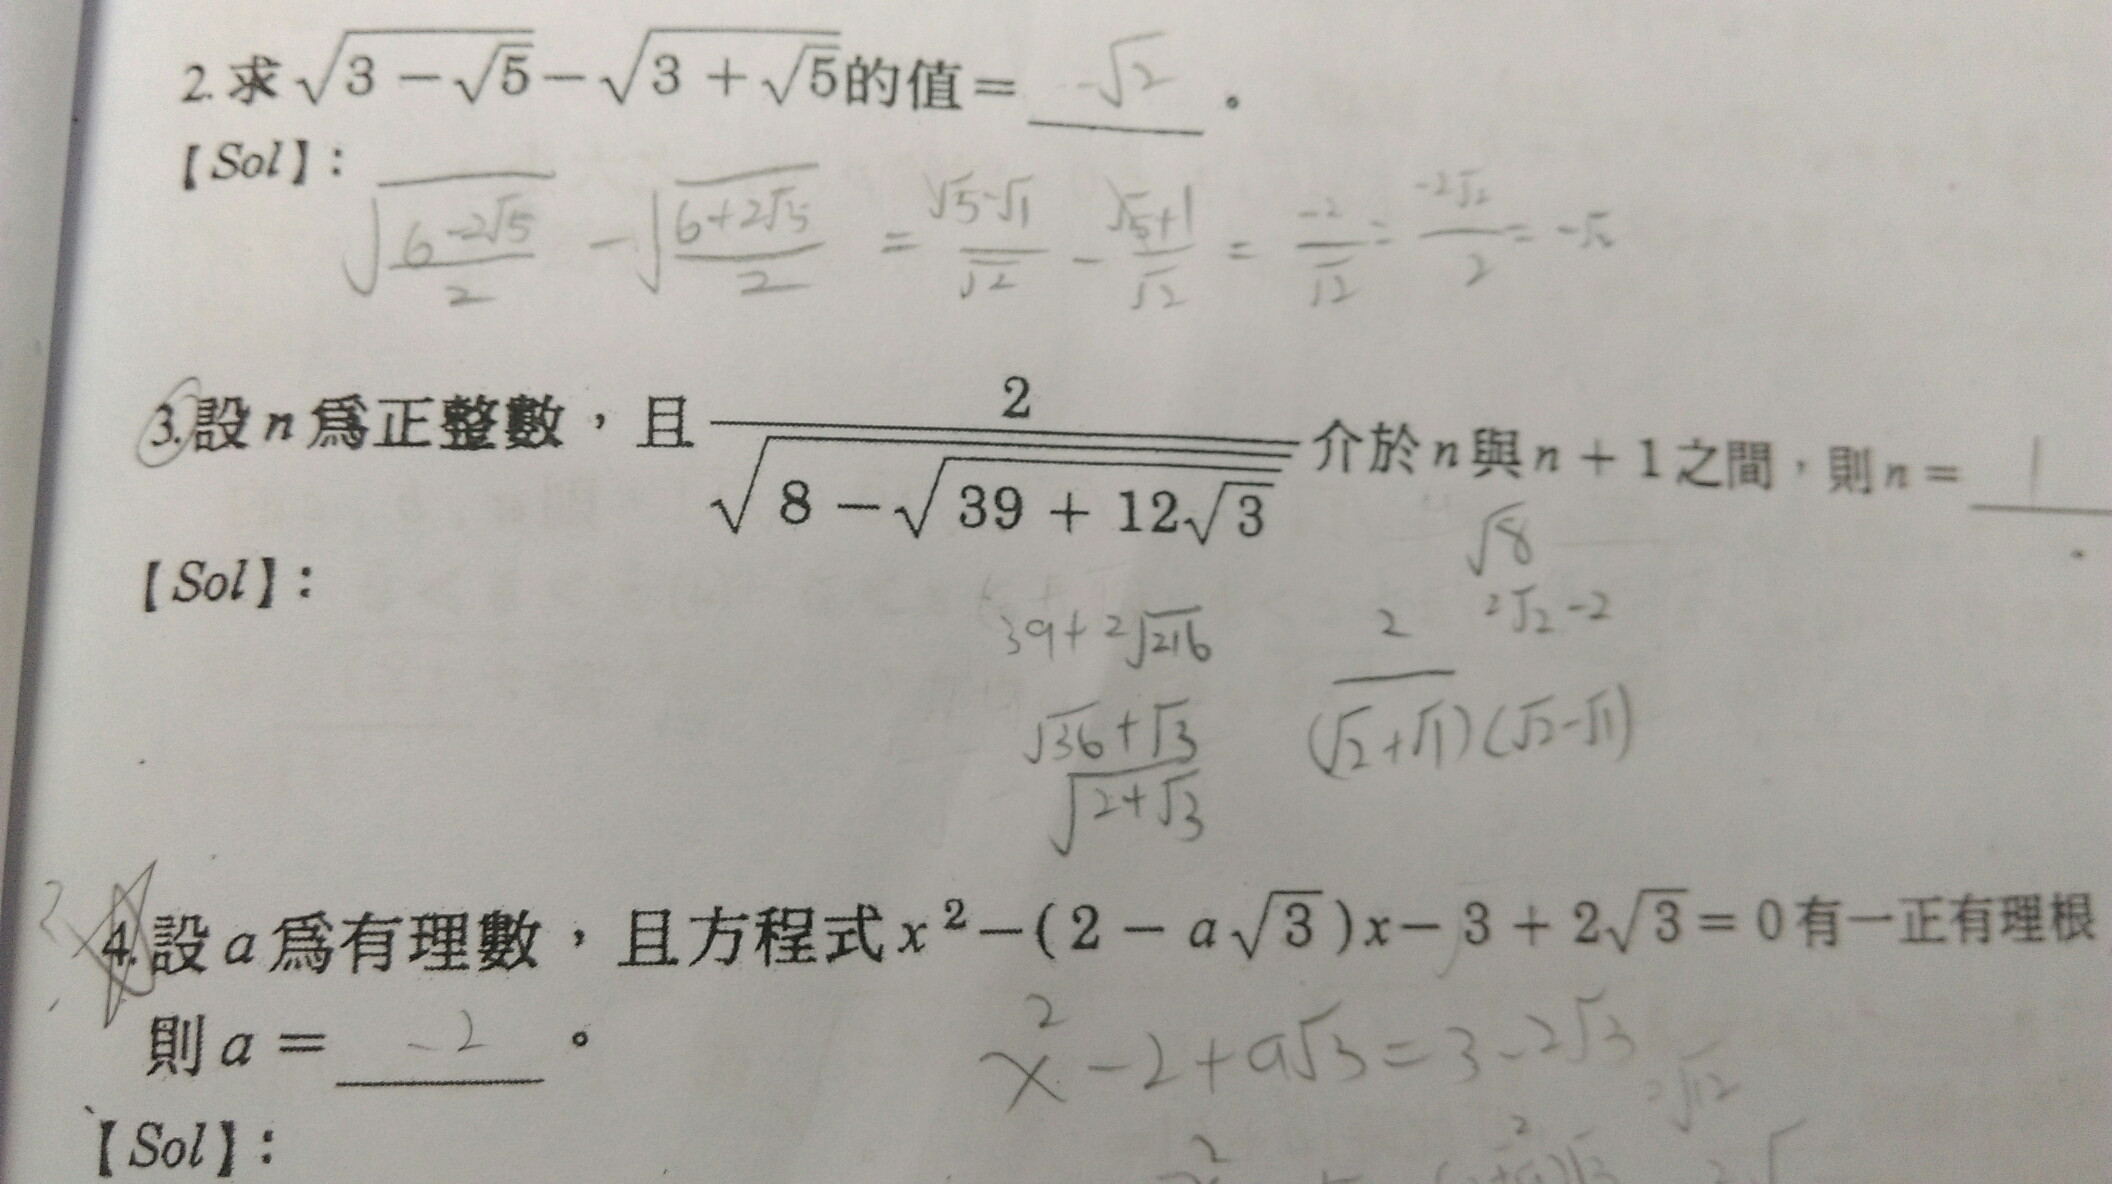 2. 求 √(3 − √5) − √(3 + √5) 的值 = -√2 。
【Sol】:
√((6-2√5)/2) - √((6+2√5)/2) = (√5-√1)/√2 - (√5+1)/√2 = -2/√2 = -2√2/2 = -√2
3. 設 n 為正整數，且 2/√(8 − √(39 + 12√3)) 介於 n 與 n + 1 之間，則 n = 1 .
√8
【Sol】:
2√2-2
39+2√216
2/((√2+√1)(√2-√1))
√36+√3
√(2+√3)
4. 設 a 為有理數，且方程式 x² − ( 2 − a√3 ) x − 3 + 2√3 = 0 有一正有理根
則 a = -2 。
x²-2+a√3=3-2√3
2√12
【Sol】: